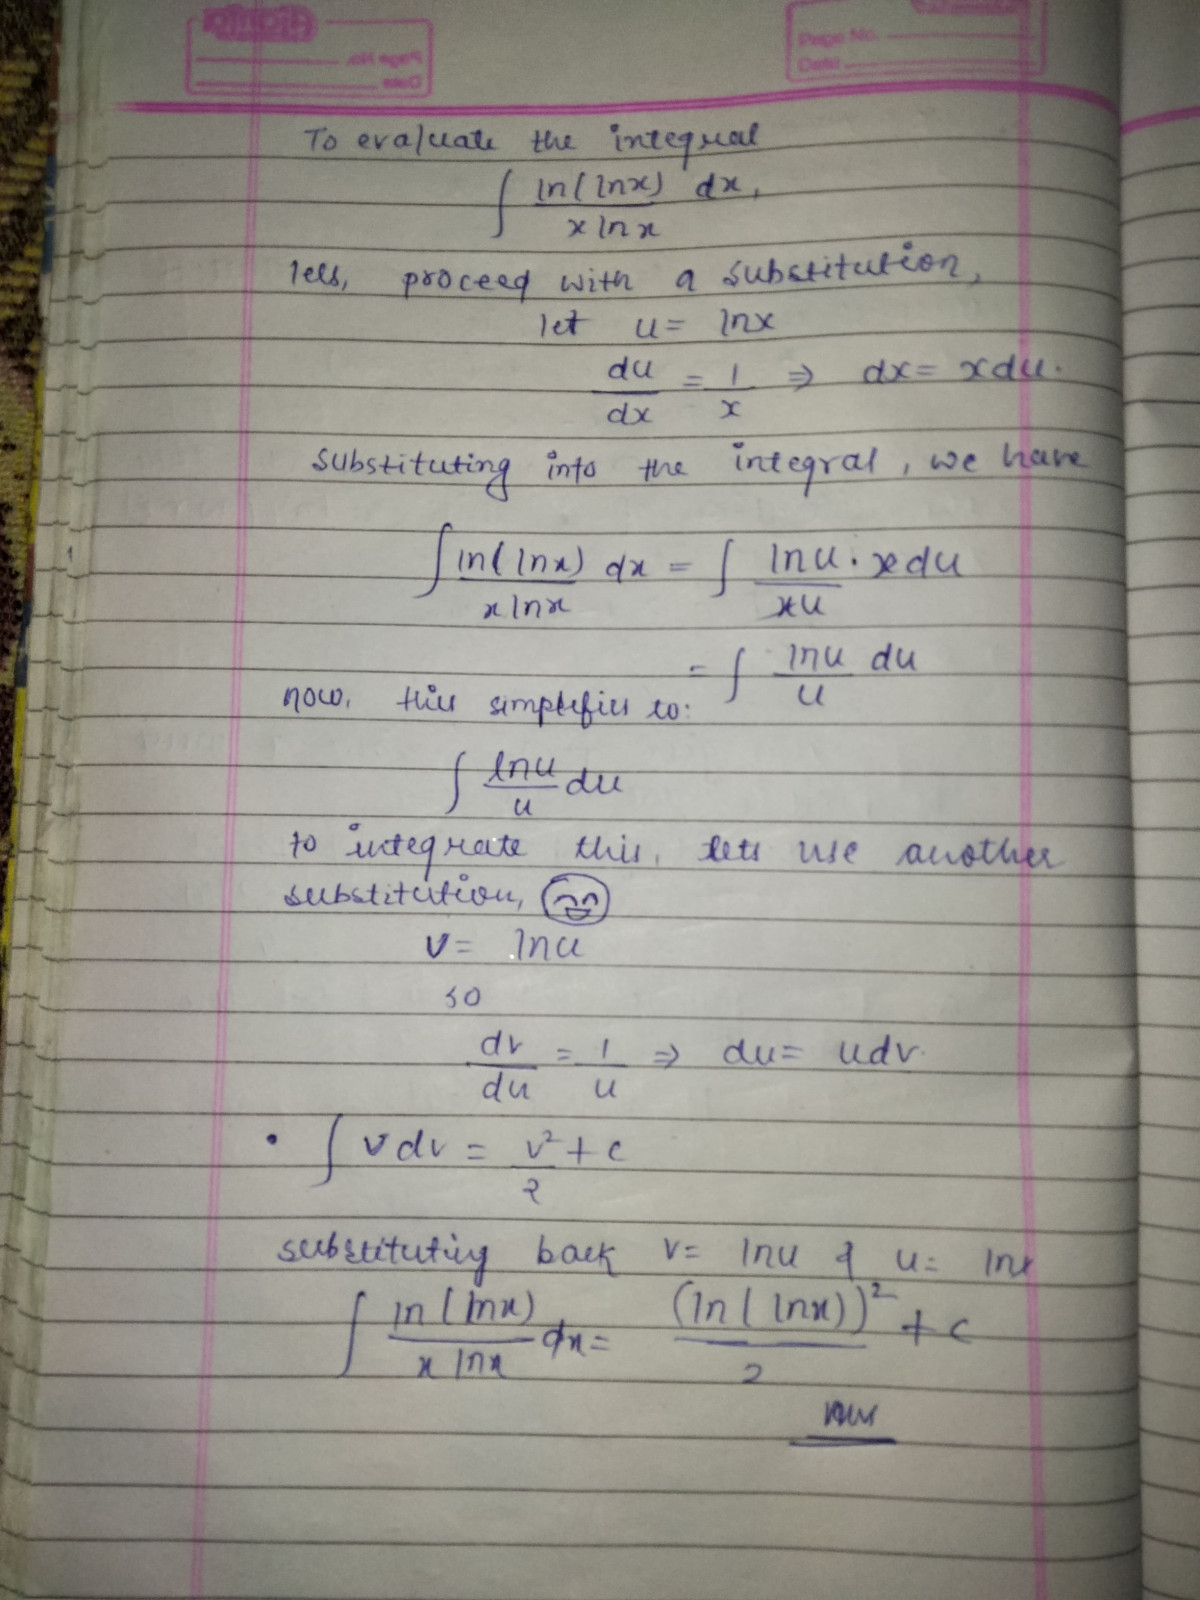 Page No.
Date
To evaluate the integral
∫ ln(lnx) / x lnx dx,
lets, proceed with a substitution,
let u = lnx
du/dx = 1/x ⇒ dx = xdu.
substituting into the integral, we have
∫ ln(lnx) / x lnx dx = ∫ lnu / xu . xdu
= ∫ lnu / u du
now, this simplifies to:
∫ lnu / u du
to integrate this, lets use another
substitution,
v = lnu
so
dv/du = 1/u ⇒ du = udv.
• ∫ vdv = v²/2 + c
substituting back v = lnu & u = lnx
∫ ln(lnx) / x lnx dx = (ln(lnx))² / 2 + c